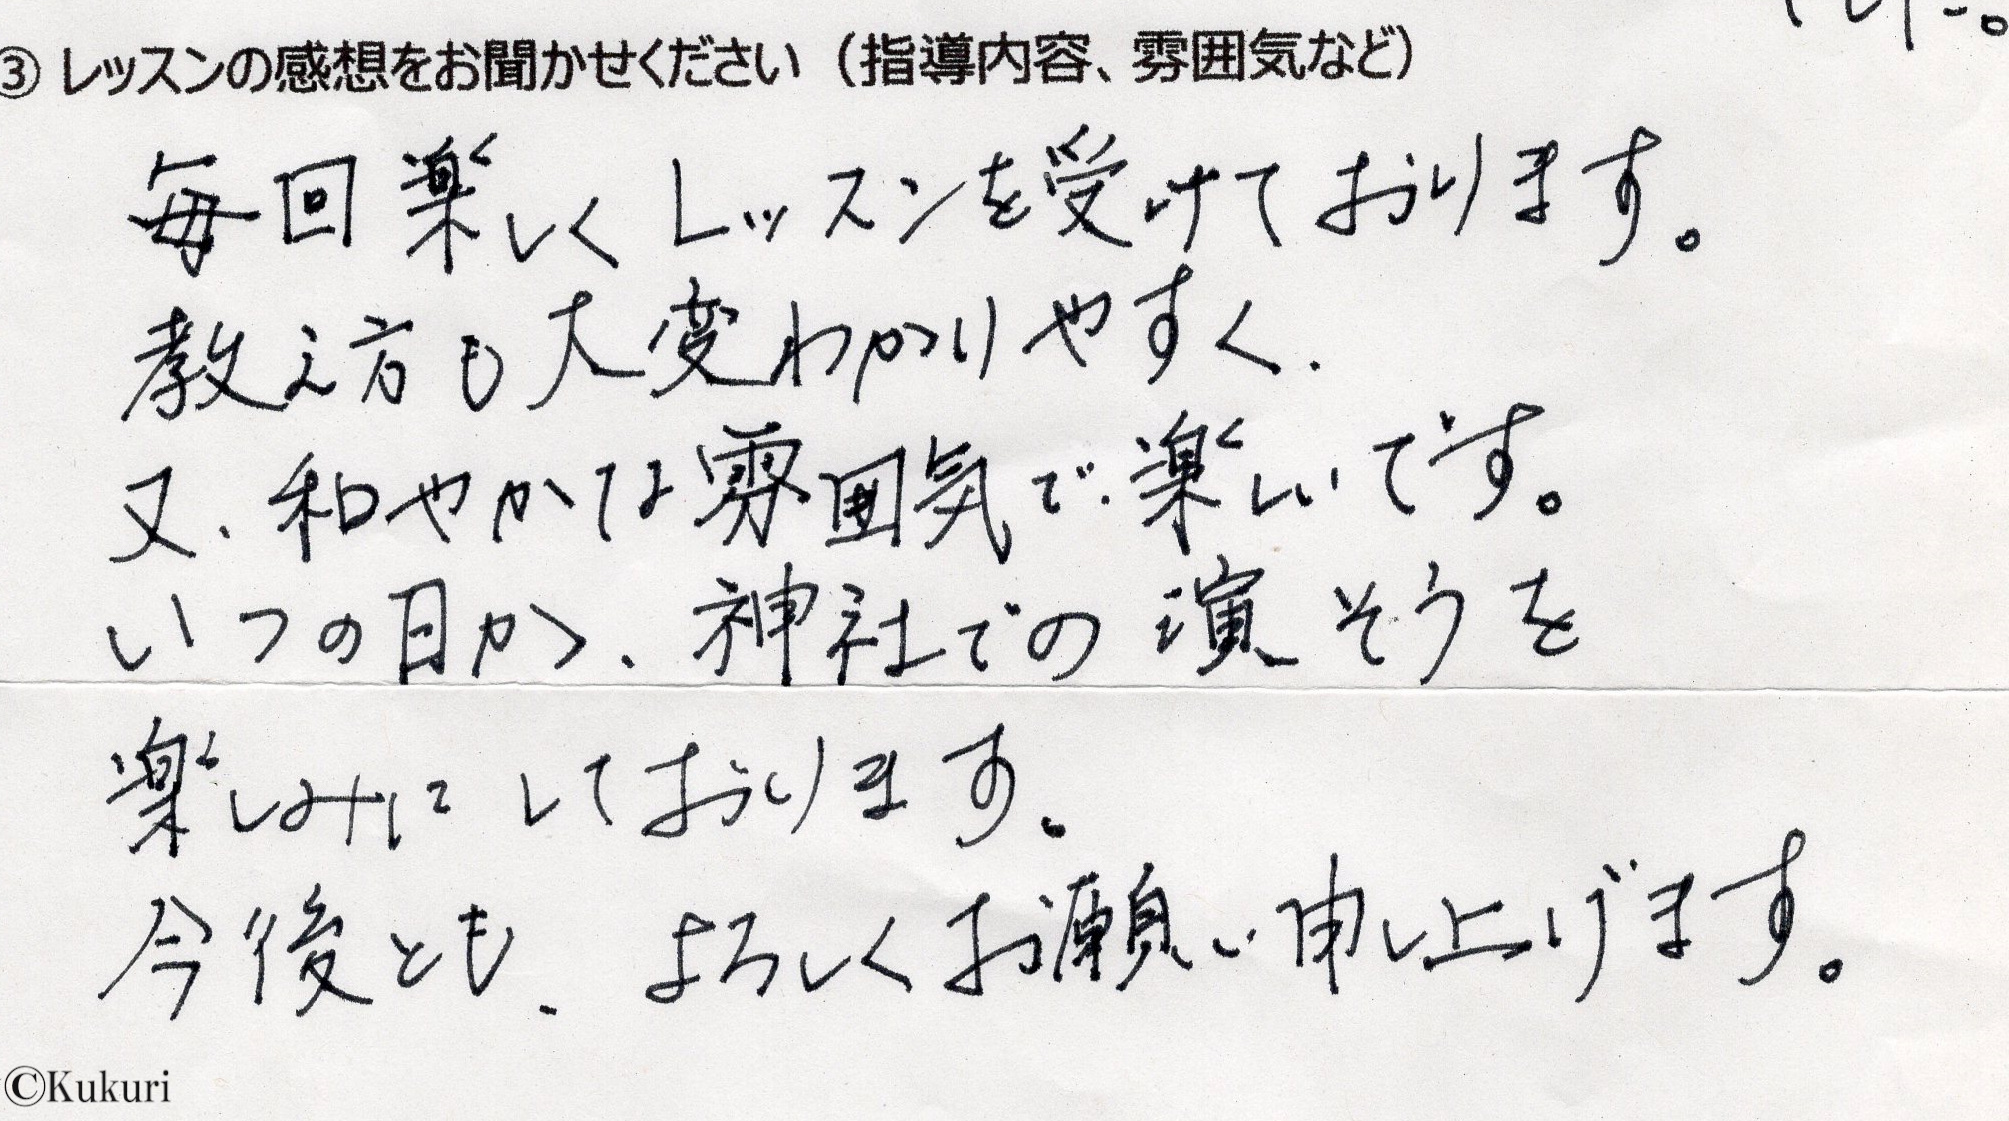 ③ レッスンの感想をお聞かせください（指導内容、雰囲気など）
毎回楽しくレッスンを受けております。
教え方も大変わかりやすく、
又、和やかな雰囲気で楽しいです。
いつの日か、神社での演そうを
楽しみにしております。
今後とも、よろしくお願い申し上げます。
©Kukuri